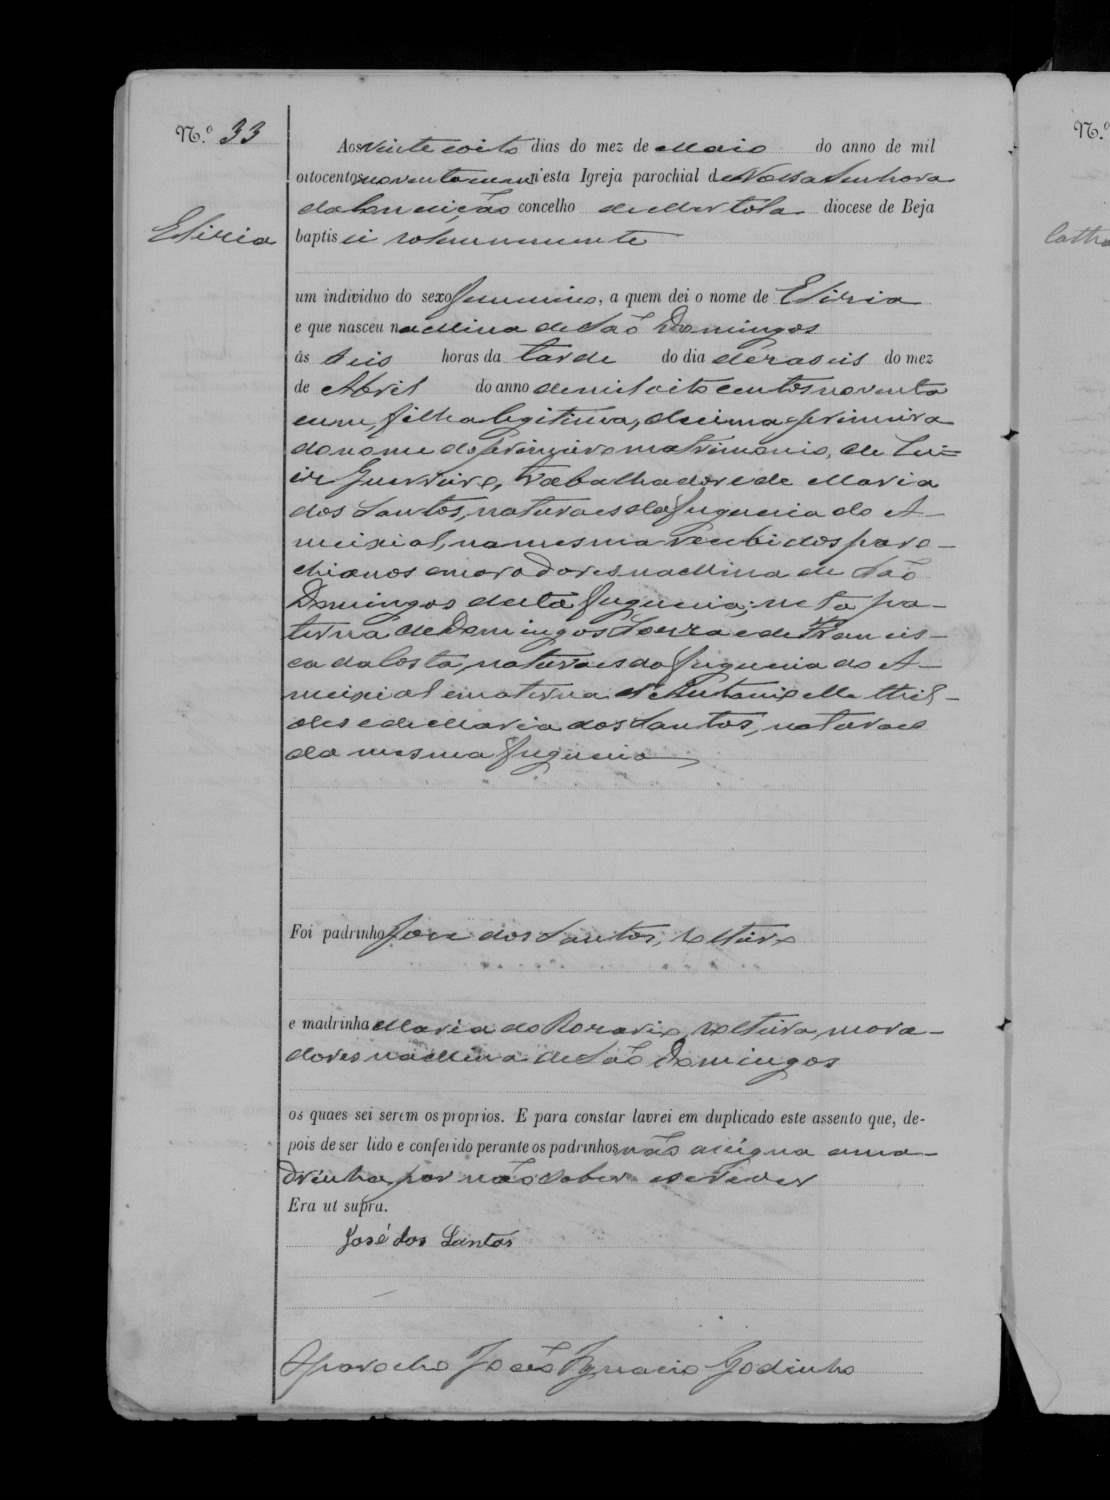 N.º 33
Aos vinte e oito dias do mez de Maio do anno de mil
oitocentos noventa e um n'esta Igreja parochial de Nossa Senhora
da Conceição concelho de Mertola diocese de Beja
Eliria
baptisei solemnemente
um individuo do sexo feminino, a quem dei o nome de Eliria
e que nasceu na Mina de São Domingos
ás seis horas da tarde do dia dezaseis do mez
de Abril do anno de mil oito centos noventa
e um, filha legitima, decima primeira
do nome do primeiro matrimonio, de
Guerreiro, trabalhador e de Maria
dos Santos, naturaes da freguezia do A-
meixial, na mesma recebidos paro-
chianos e moradores na Mina de São
Domingos desta freguezia; neta pa-
terna de Domingos Souza e de Francis-
ca da Costa, naturaes da freguezia do A-
meixial e materna d'Antonio
e de Maria dos Santos, naturaes
da mesma freguezia
Foi padrinho José dos Santos, solteiro
e madrinha Maria do Rozario, solteira, mora-
dores na Mina de São Domingos
os quaes sei serem os proprios. E para constar lavrei em duplicado este assento que, de-
pois de ser lido e conferido perante os padrinhos não assigna a ma-
drinha por não saber escrever
Era ut supra.
José dos Santos
O parocho João Ignacio Godinho
N.º